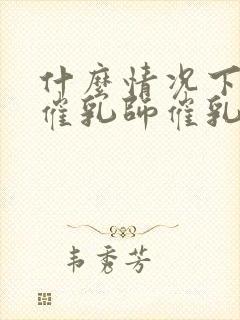 什麼情况下
催乳師催乳
韦秀芳